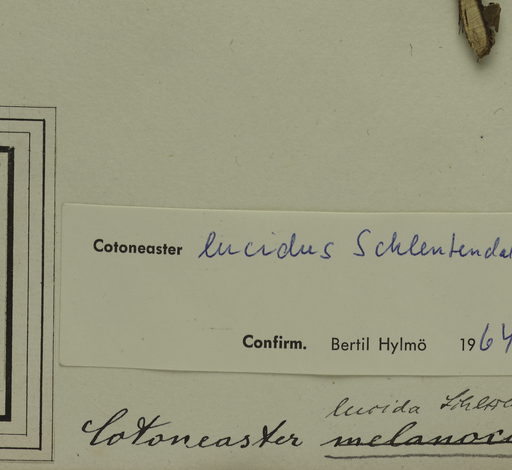 Cotoneaster lucidus Schlentendal
Confirm. Bertil Hylmö 1964
lucida
Cotoneaster